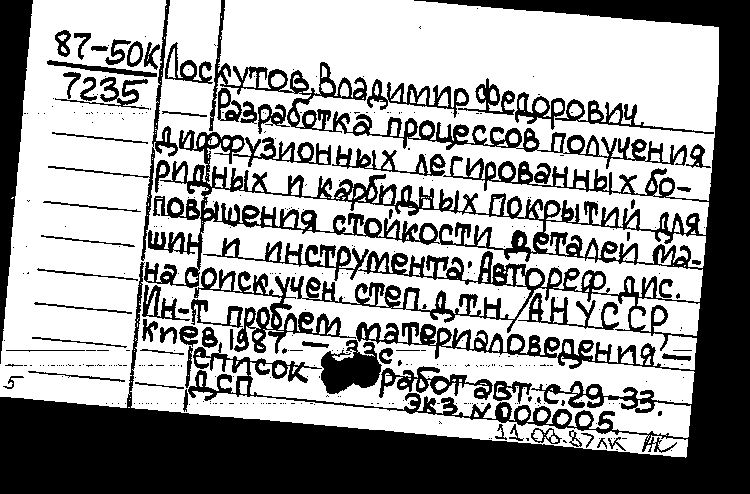 87-50К
7235
Лоскутов, Владимир Федорович.
Разработка процессов получения
диффузионных легированных бо-
ридных и карбидных покрытий для
повышения стойкости деталей ма-
шин и инструмента: Автореф. дис.
на соиск. учен. степ. д.т.н. / АН УССР,
Ин-т проблем материаловедения. —
Киев, 1987. — 33с.
Список работ авт.: с. 29-33.
Дсп. Экз. №000005.
11.08.87лк АК
5